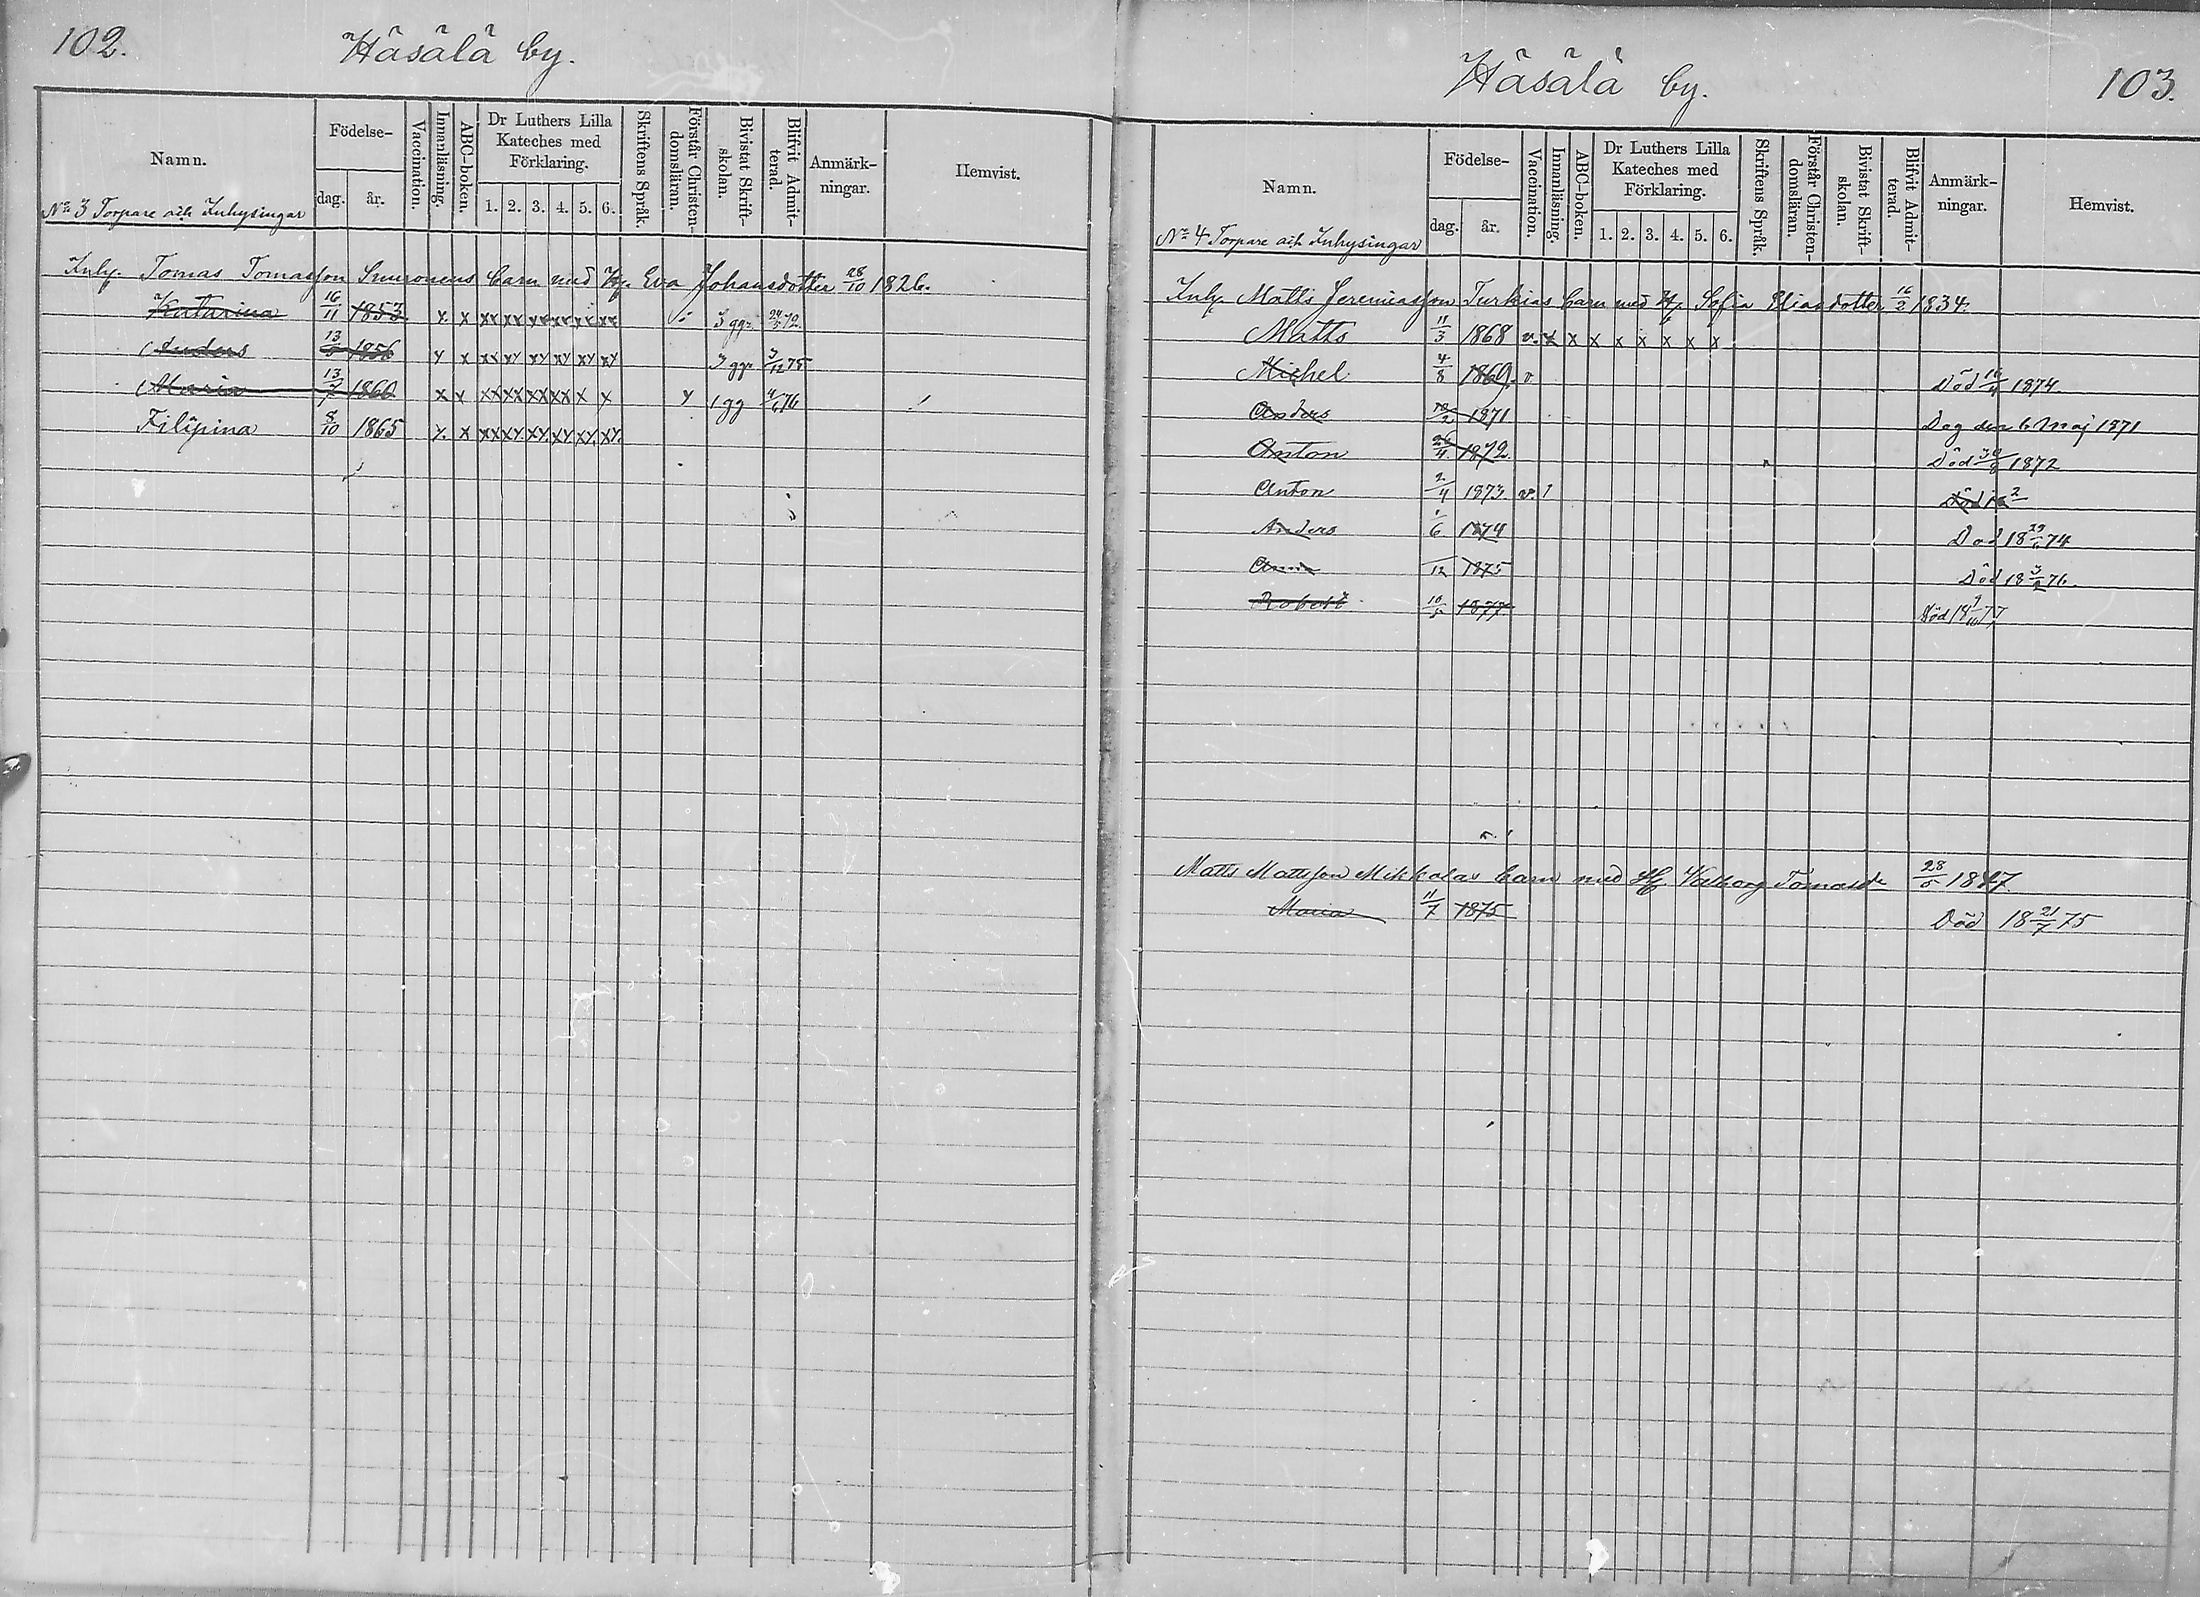 102.
Häsälä by.
Namn.
Födelse-
dag.
år.
Vaccination.
Innanläsning.
ABC-boken.
Dr Luthers Lilla
Kateches med
Förklaring.
1. 2. 3. 4. 5. 6.
Skriftens Språk.
Förstår Christen-
domsläran.
Bivistat Skrift-
skolan.
Blifvit Admit-
terad.
Anmärk-
ningar.
Hemvist.
No 3 Torpare och Inhysingar
Inhy. Tomas Tomasson Simonens barn med H. Eva Johansdotter 28/10 1826.
Katarina 16/11 1853 x x xx xx xx xx xx xx 3 ggr 24/5 72.
Anders 13/5 1856 x x xx xx xx xx xx xx 3 ggr 3/12 75
Maria 13/7 1860 x x xx xx xx xx x x x 1 gg 4/6 76
Filipina 8/10 1865 x. x xx xx xx xx xx xx.
Häsälä by.
103.
Namn.
Födelse-
dag.
år.
Vaccination.
Innanläsning.
ABC-boken.
Dr Luthers Lilla
Kateches med
Förklaring.
1. 2. 3. 4. 5. 6.
Skriftens Språk.
Förstår Christen-
domsläran.
Bivistat Skrift-
skolan.
Blifvit Admit-
terad.
Anmärk-
ningar.
Hemvist.
No 4 Torpare och Inhysingar
Inhy. Matts Jeremiasson Turkias barn med H. Sofia Eliasdotter 16/2 1834.
Matts 11/3 1868 v. x x x x x x x x
Michel 4/8 1869. v Död 1874
Anders 1871 Dog den 6 Maj 1871
Anton 26/4 1872. Död 30/8 1872
Anton 2/4 1873 v. 1 Död
Anders 1/6 1874 Död 18 74
Anna /12 1875 Död 18 76.
Robert 10/5 1877 Död 18 77
Matts Mattsson Mikkolas barn med H. Valborg Tomasd. 28/5 1847.
Maria 11/7 1875 Död 18 21/7 75